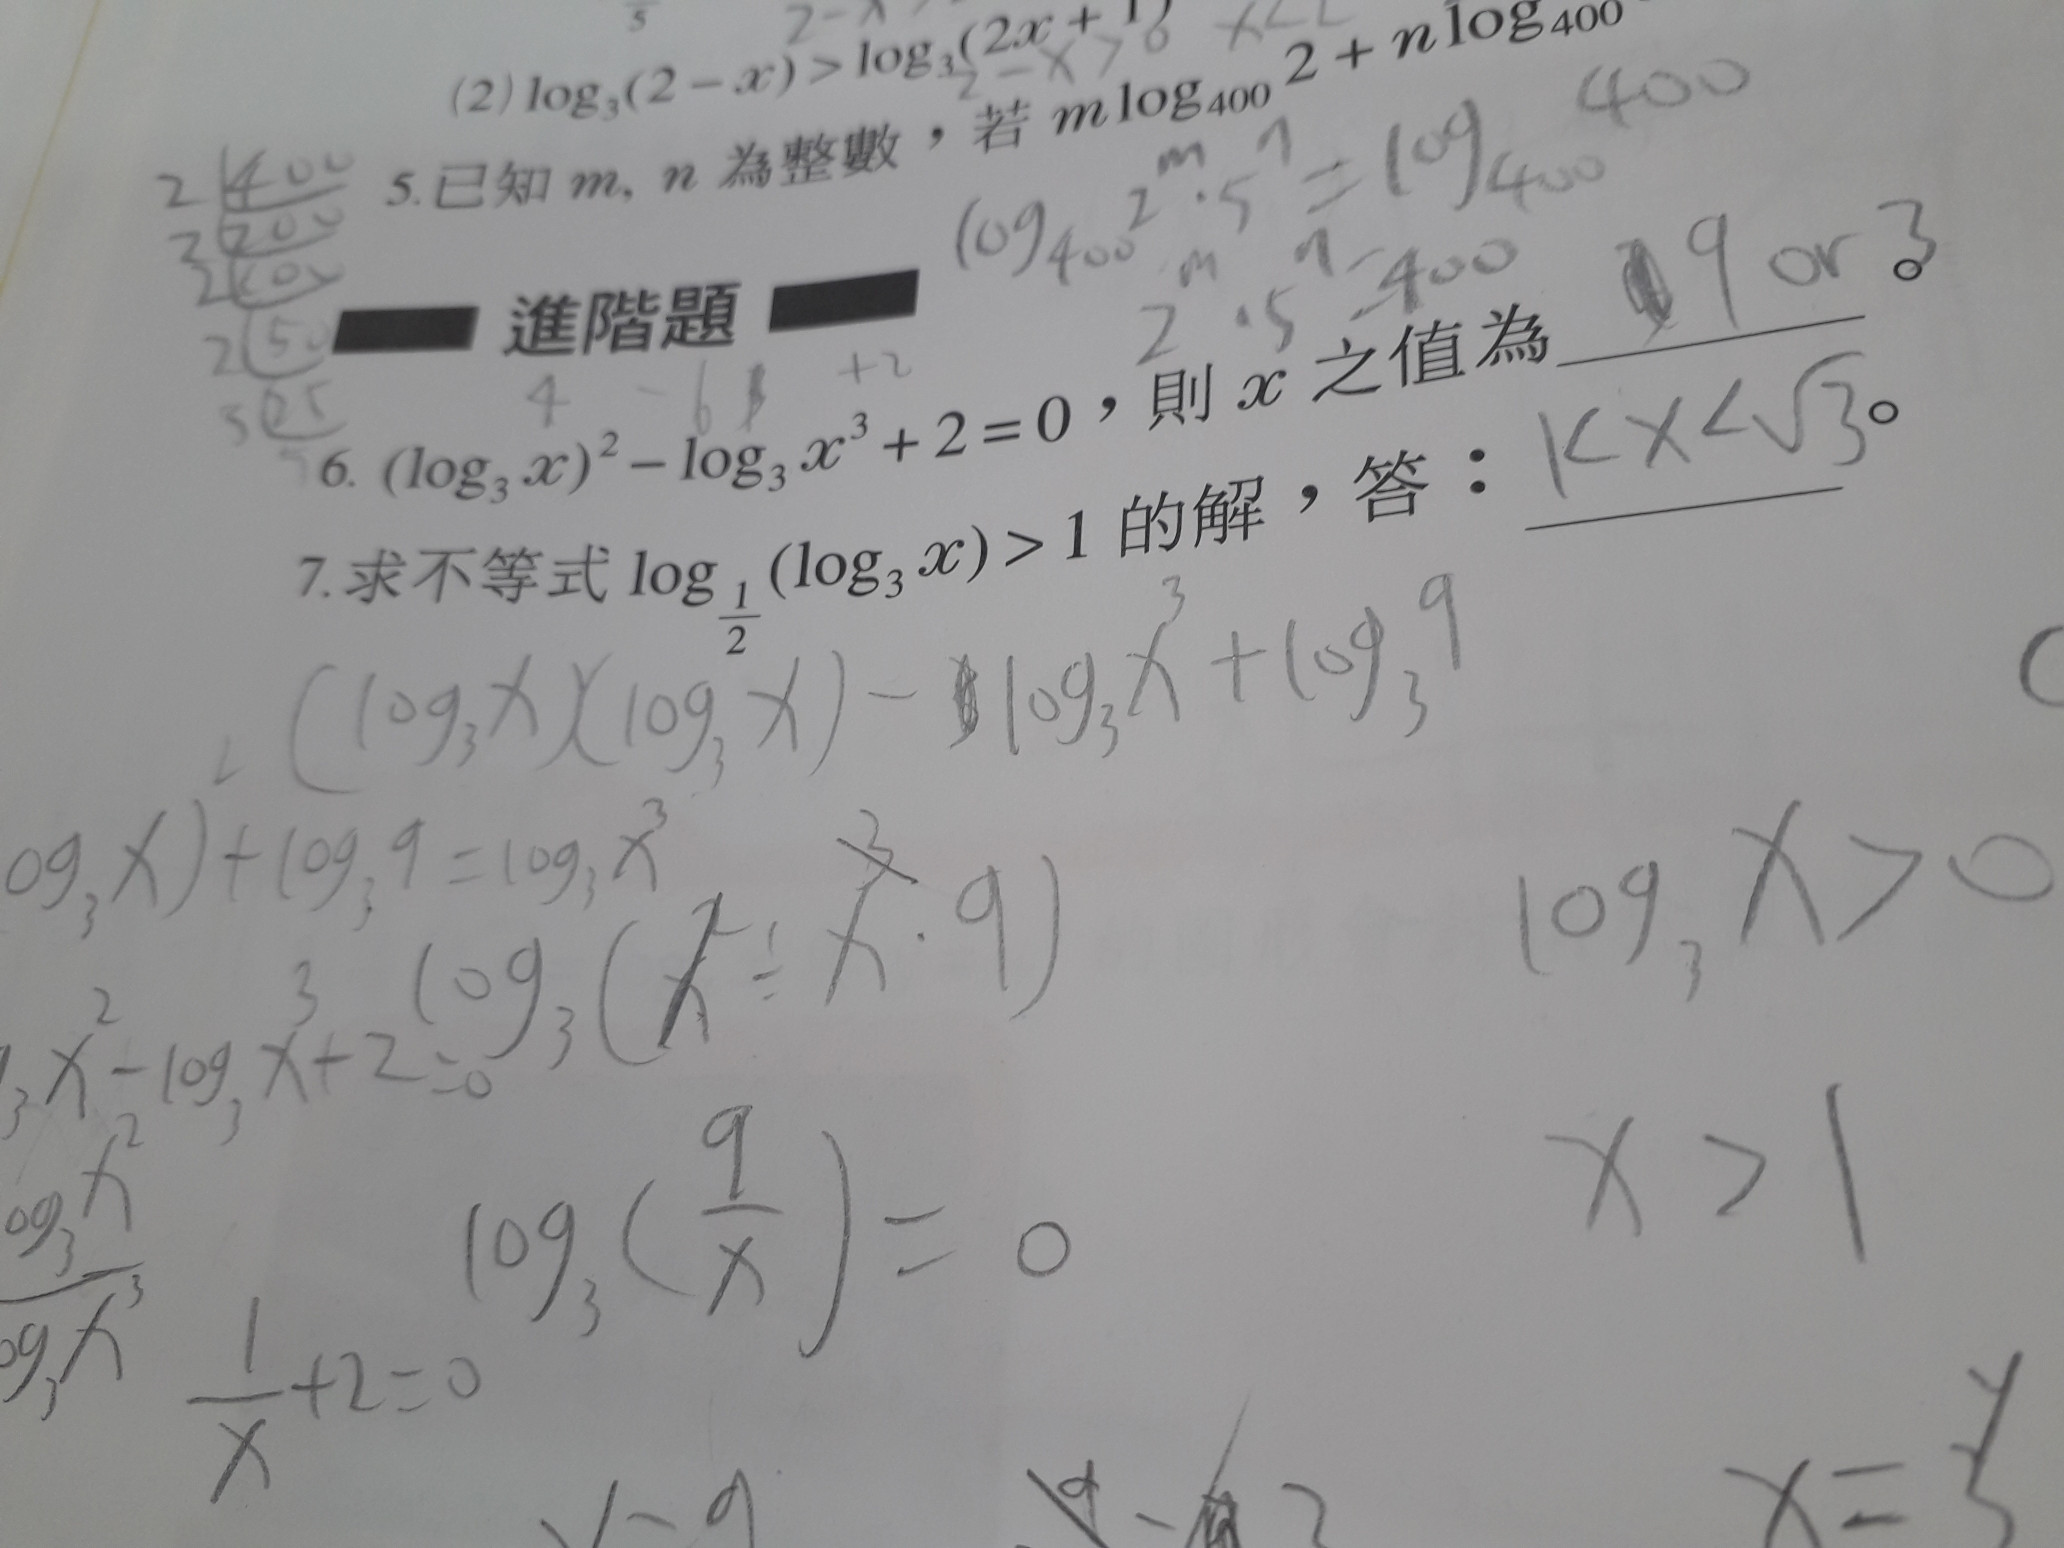 (2) log₃(2-x) > log₃(2x+1)
2-x>0 x<2
5.已知 m, n 為整數，若 m log₄₀₀ 2 + n log₄₀₀
2 400
2 200
2 100
2 50
5 25
log₄₀₀ 2ᵐ·5ⁿ = log₄₀₀ 400
2ᵐ·5ⁿ=400
進階題
4 -6 +2
6. (log₃ x)² - log₃ x³ + 2 = 0，則 x 之值為 9 or 3。
7.求不等式 log_{1/2} (log₃ x) > 1 的解，答： 1<x<√3。
(log₃x)(log₃x) - log₃x³ + log₃9
og₃x) + log₃9 = log₃x³
log₃(x² ÷ x³ · 9)
log₃x > 0
₃x² - log₃x³ + 2 = 0
x > 1
log₃(9/x) = 0
og₃x²
og₃x³
1/x + 2 = 0